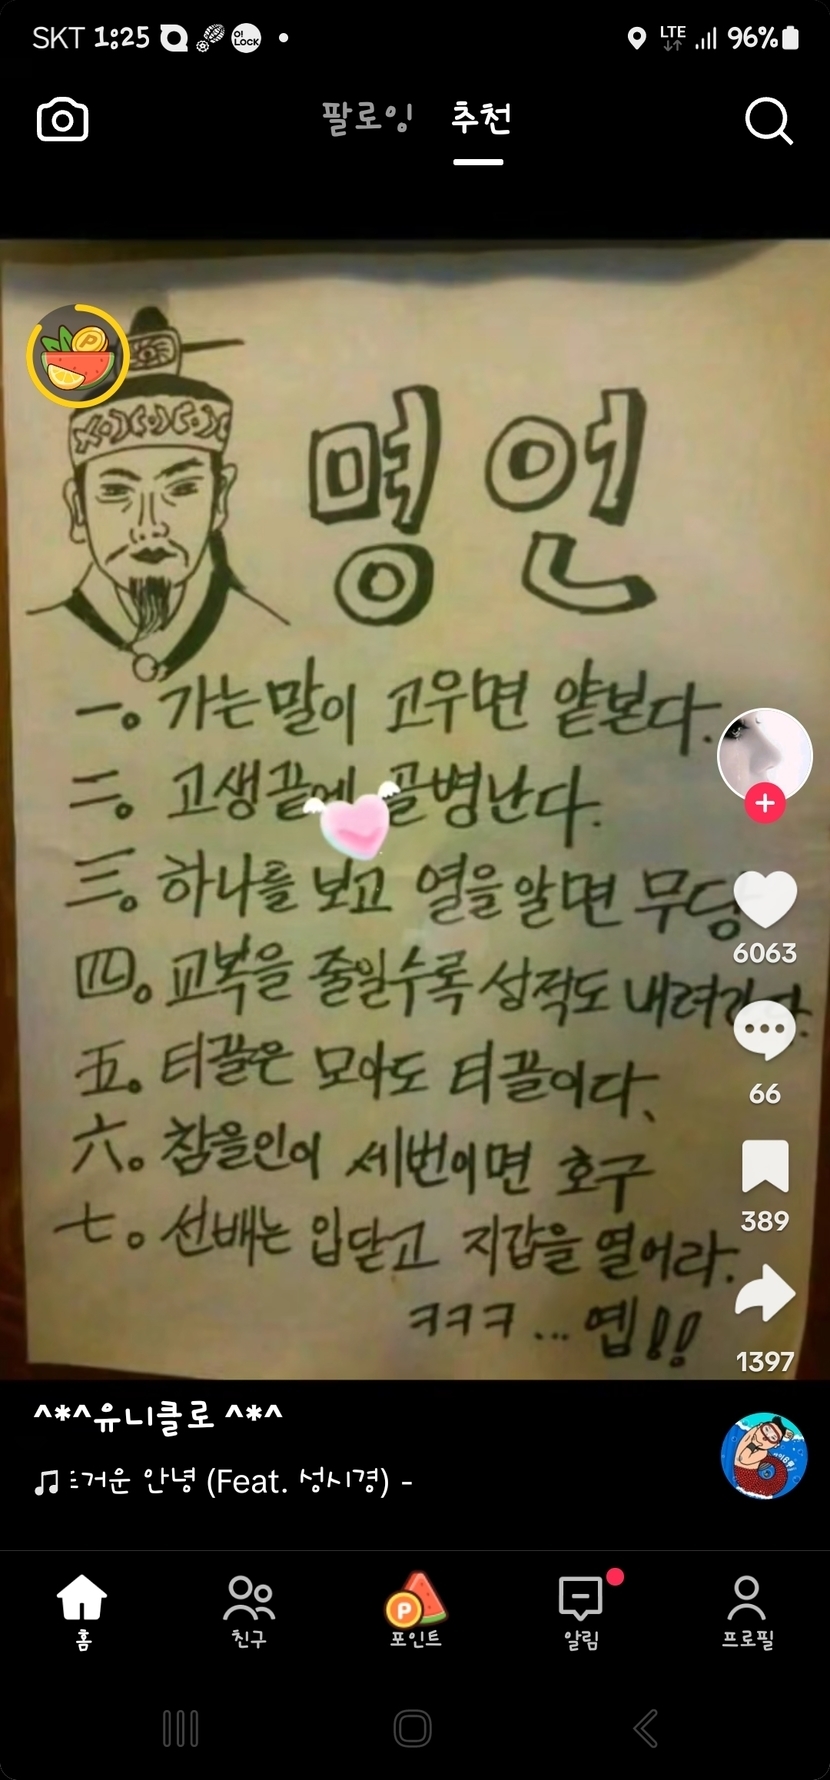 SKT 1:25 O! LOCK LTE 96%
팔로잉 추천
P
명언
一。 가는말이 고우면 얕본다.
二。 고생끝에 골병난다.
三。 하나를 보고 열을 알면 무당
四。 교복을 줄일수록 성적도 내려간다.
五。 티끌은 모아도 티끌이다、
六。 참을인이 세번이면 호구
七。 선배는 입닫고 지갑을 열어라.
ㅋㅋㅋ... 옙!!
6063
66
389
1397
^*^유니클로 ^*^
뜨거운 안녕 (Feat. 성시경) -
P
홈 친구 포인트 알림 프로필